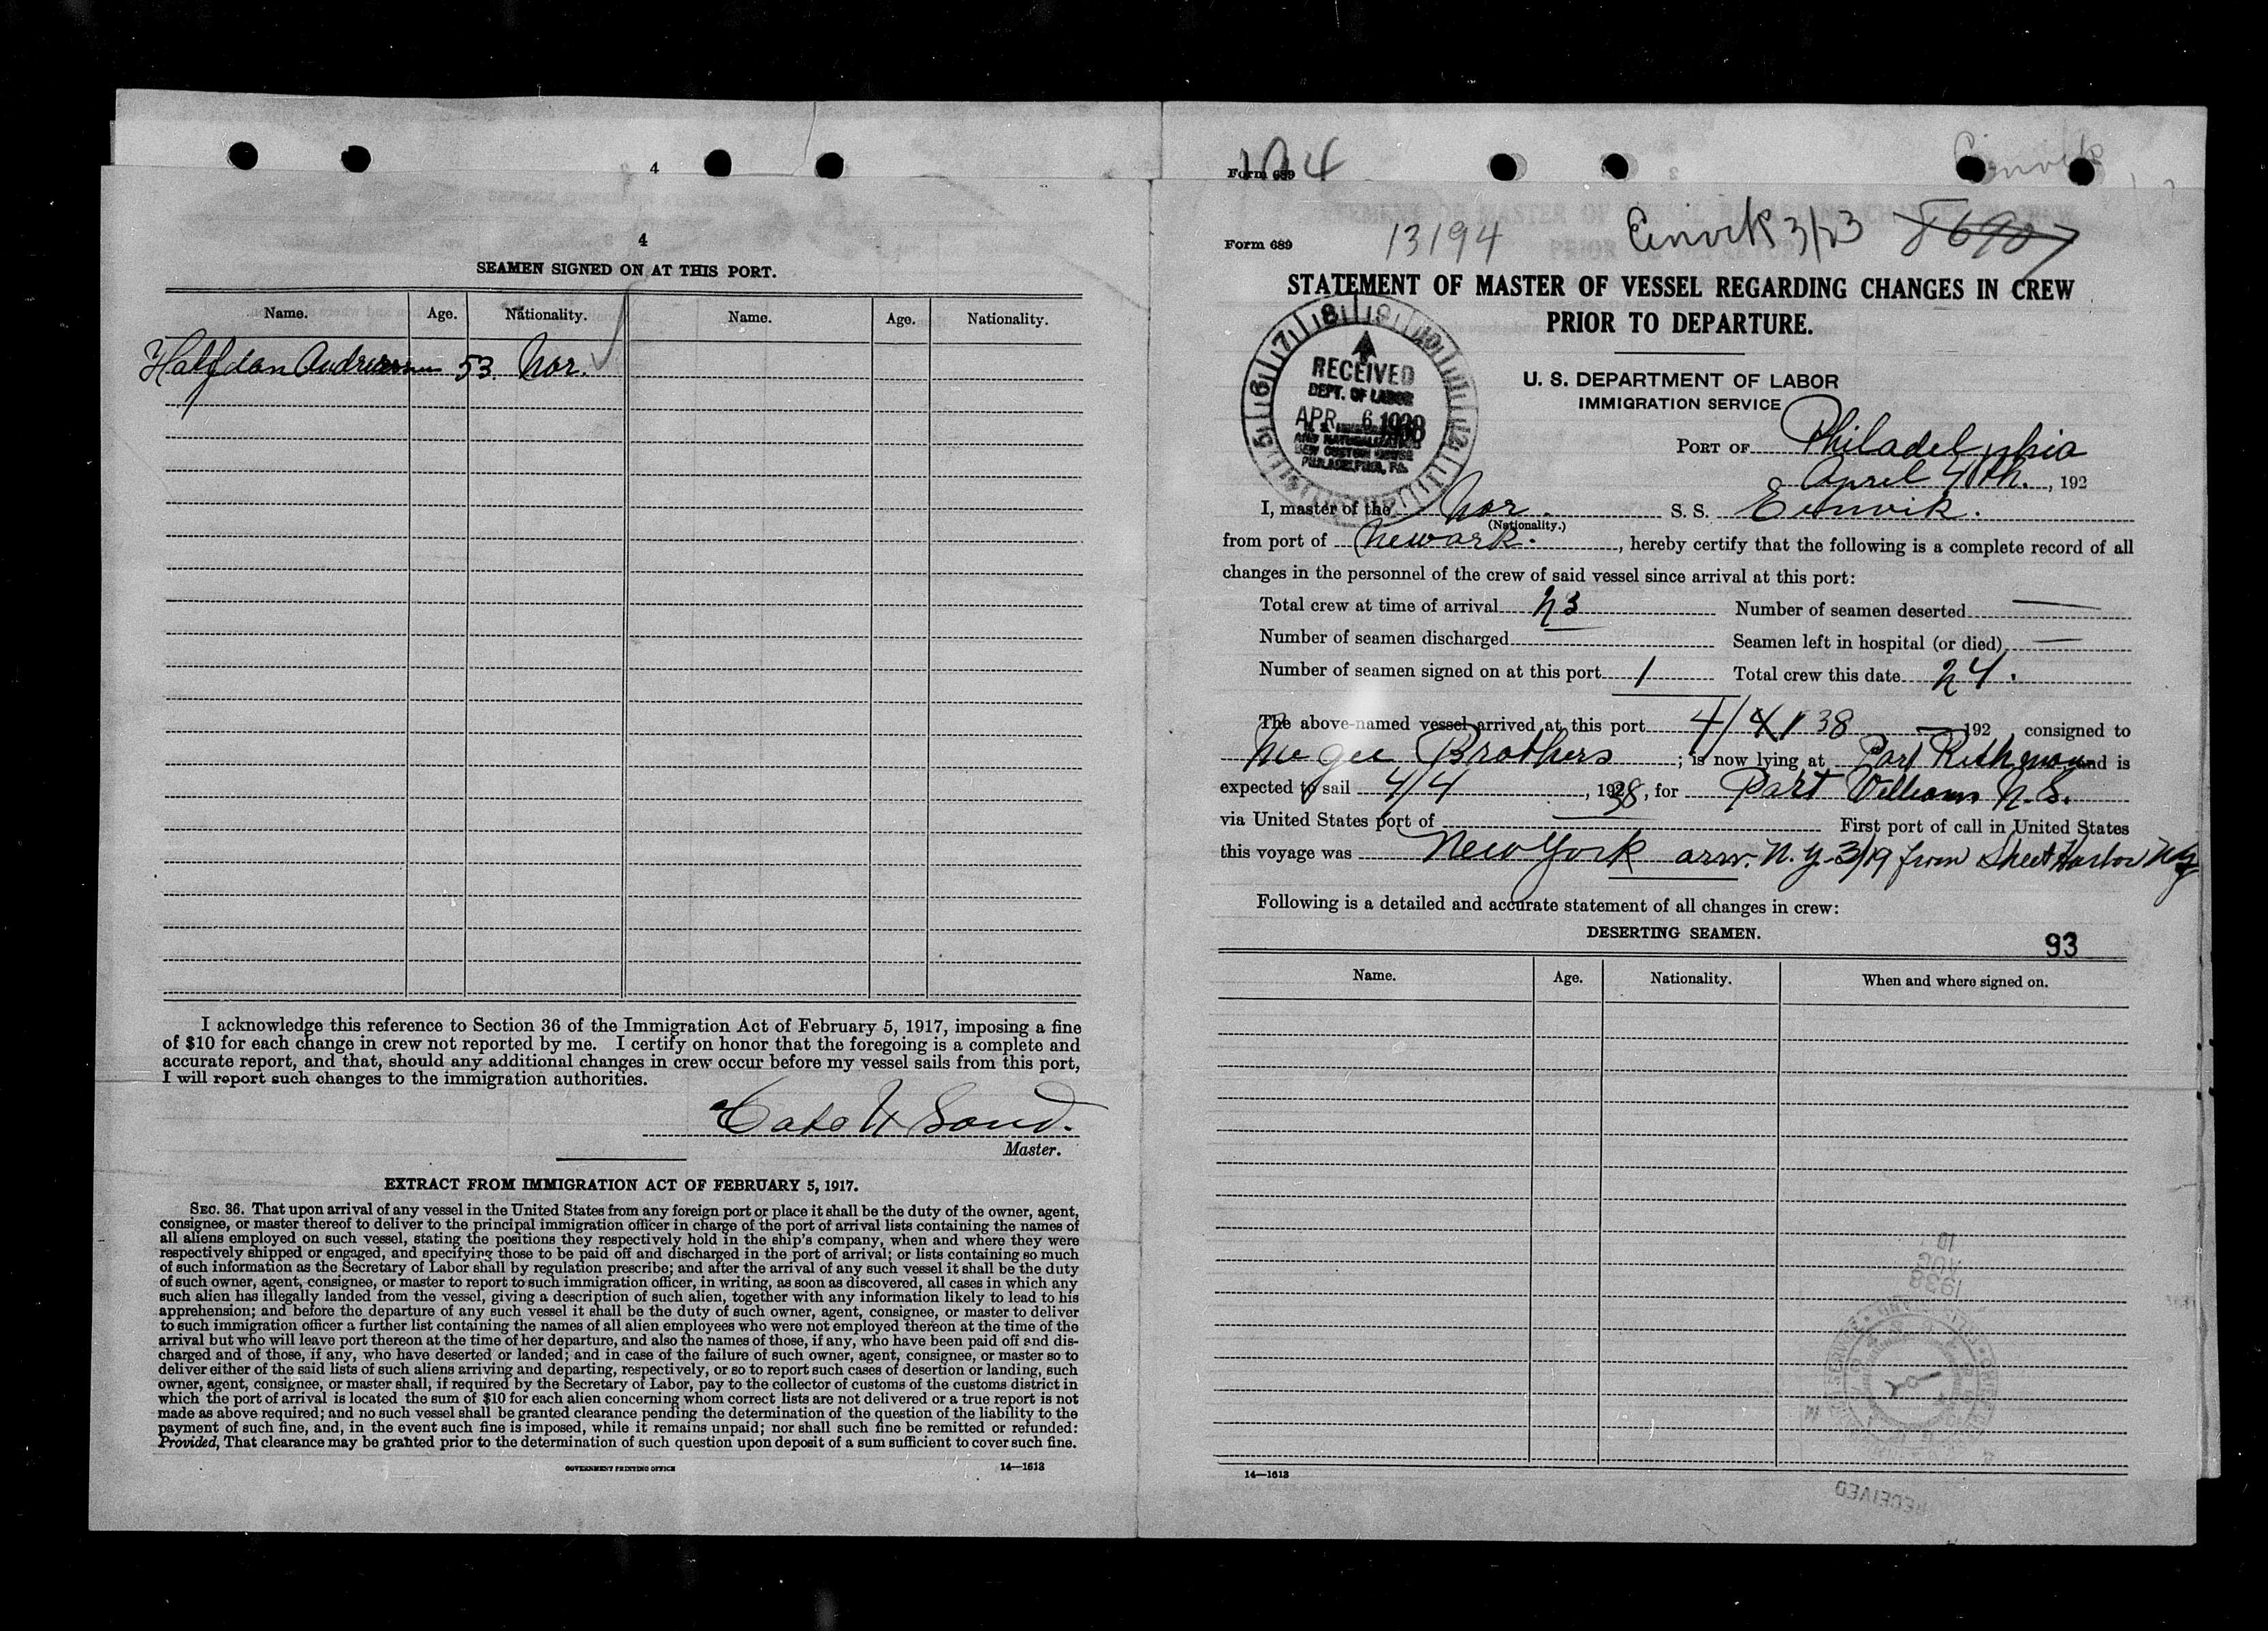 4
4
SEAMEN SIGNED ON AT THIS PORT.
Name. Age. Nationality. Name. Age. Nationality.
Halfdan 53. Nor.
I acknowledge this reference to Section 36 of the Immigration Act of February 5, 1917, imposing a fine
of $10 for each change in crew not reported by me. I certify on honor that the foregoing is a complete and
accurate report, and that, should any additional changes in crew occur before my vessel sails from this port,
I will report such changes to the immigration authorities.
Sand.
Master.
EXTRACT FROM IMMIGRATION ACT OF FEBRUARY 5, 1917.
SEC. 36. That upon arrival of any vessel in the United States from any foreign port or place it shall be the duty of the owner, agent,
consignee, or master thereof to deliver to the principal immigration officer in charge of the port of arrival lists containing the names of
all aliens employed on such vessel, stating the positions they respectively hold in the ship's company, when and where they were
respectively shipped or engaged, and specifying those to be paid off and discharged in the port of arrival; or lists containing so much
of such information as the Secretary of Labor shall by regulation prescribe; and after the arrival of any such vessel it shall be the duty
of such owner, agent, consignee, or master to report to such immigration officer, in writing, as soon as discovered, all cases in which any
such alien has illegally landed from the vessel, giving a description of such alien, together with any information likely to lead to his
apprehension; and before the departure of any such vessel it shall be the duty of such owner, agent, consignee, or master to deliver
to such immigration officer a further list containing the names of all alien employees who were not employed thereon at the time of the
arrival but who will leave port thereon at the time of her departure, and also the names of those, if any, who have been paid off and dis-
charged and of those, if any, who have deserted or landed; and in case of the failure of such owner, agent, consignee, or master so to
deliver either of the said lists of such aliens arriving and departing, respectively, or so to report such cases of desertion or landing, such
owner, agent, consignee, or master shall, if required by the Secretary of Labor, pay to the collector of customs of the customs district in
which the port of arrival is located the sum of $10 for each alien concerning whom correct lists are not delivered or a true report is not
made as above required; and no such vessel shall be granted clearance pending the determination of the question of the liability to the
payment of such fine, and, in the event such fine is imposed, while it remains unpaid; nor shall such fine be remitted or refunded:
Provided, That clearance may be granted prior to the determination of such question upon deposit of a sum sufficient to cover such fine.
GOVERNMENT PRINTING OFFICE 14—1613
Form 689
Einvik
Form 689 13194 Einvik 3/23
STATEMENT OF MASTER OF VESSEL REGARDING CHANGES IN CREW
PRIOR TO DEPARTURE.
U. S. DEPARTMENT OF LABOR
IMMIGRATION SERVICE
RECEIVED
DEPT. OF LABOR
APR 6 1938
AND NATURALIZATION
NEW CUSTOM HOUSE
PHILADELPHIA, PA.
PORT OF Philadelphia
April 4th., 192
I, master of the Nor. S. S. Einvik.
(Nationality.)
from port of Newark., hereby certify that the following is a complete record of all
changes in the personnel of the crew of said vessel since arrival at this port:
Total crew at time of arrival 23 Number of seamen deserted —
Number of seamen discharged — Seamen left in hospital (or died) —
Number of seamen signed on at this port 1 Total crew this date 24.
The above-named vessel arrived at this port 4/4/38 — 192 consigned to
Brothers; is now lying at Port Richmond and is
expected to sail 4/4, 1938, for Port William N.S.
via United States port of — First port of call in United States
this voyage was New York arrv. N.Y. 3/19 from Sheet Harbor
Following is a detailed and accurate statement of all changes in crew:
DESERTING SEAMEN.
93
Name. Age. Nationality. When and where signed on.
10
AUG
1938
RECEIVED
14—1613